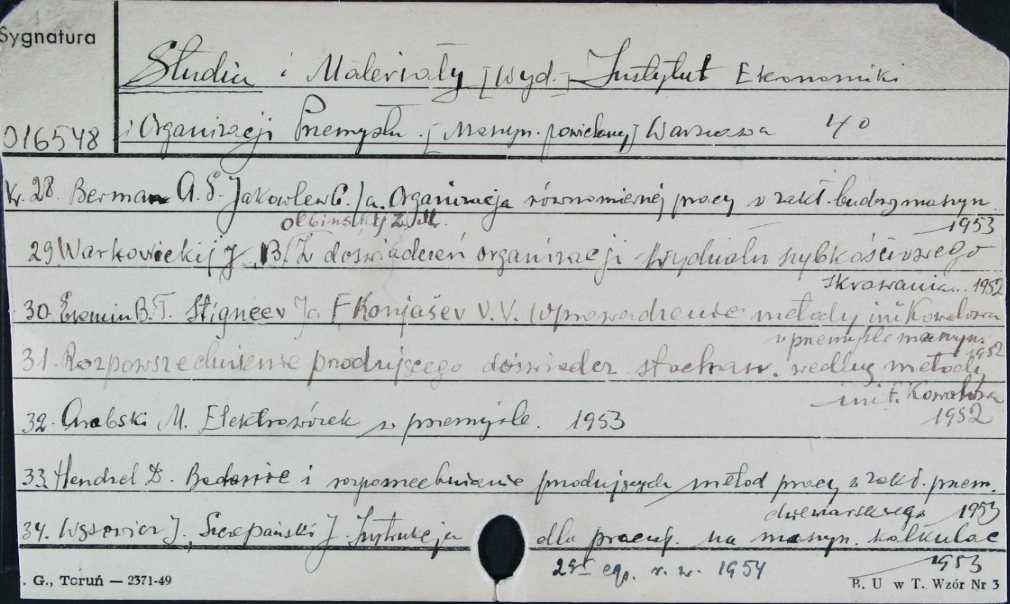 Sygnatura
Studia i Materiały [Wyd.] Instytut Ekonomiki
016548
i Organizacji Przemysłu. [Maszyn. powielany] Warszawa 40
Nr. 28. Berman A. G. Jakowlew G. Ja. Organizacja równomiernej pracy w zakł. budowy maszyn.
Olbinskij Z. M. 1953
29 Warkowieckij J. B. Z doświadczeń organizacji wydziału szybkościowego
skrawania. 1952
30. Eremin B. T. Stigneev Ja. F Konjašev V. V. Wprowadzenie metody inż Kowalowa
w przemyśle maszyn. 1952
31. Rozpowszechnienie przodującego doświadcz stachan. według metody
inż. F. Kowalowa
1952
32. Arabski M. Elektrowózek w przemyśle. 1953
33 Hendzel D. Badanie i rozpowszechnianie przodujących metod pracy w zakł. przem.
drzewarskiego 1953
34. Wysowicz J., Szczepański J. Instrukcja dla pracuj. na maszyn. kalkulac
1953
. G., Toruń — 2371-49
1954
B. U w T. Wzór Nr 3